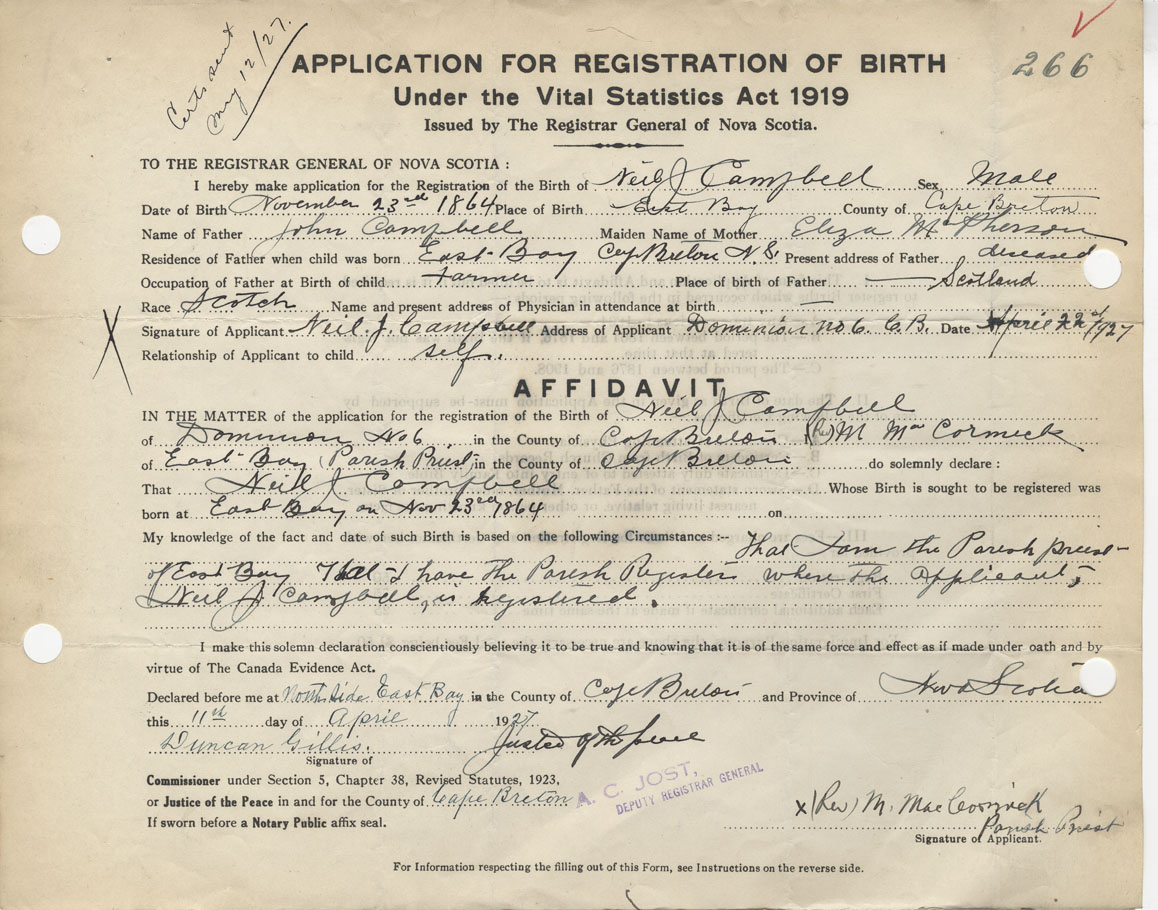 Certs sent
May 12/27.
266
APPLICATION FOR REGISTRATION OF BIRTH
Under the Vital Statistics Act 1919
Issued by The Registrar General of Nova Scotia.
TO THE REGISTRAR GENERAL OF NOVA SCOTIA :
I hereby make application for the Registration of the Birth of Neil J Campbell Sex Male
Date of Birth November 23rd 1864 Place of Birth East Bay County of Cape Breton
Name of Father John Campbell Maiden Name of Mother Eliza McPherson
Residence of Father when child was born East Bay Cape Breton N.S. Present address of Father deceased
Occupation of Father at Birth of child Farmer Place of birth of Father Scotland
Race Scotch Name and present address of Physician in attendance at birth
X Signature of Applicant Neil. J. Campbell Address of Applicant Dominion No 6. C.B. Date April 22st 1927
Relationship of Applicant to child self.
AFFIDAVIT
IN THE MATTER of the application for the registration of the Birth of Neil J Campbell
of Dominion No 6 in the County of Cape Breton (Rev) M MacCormick
of East Bay (Parish Priest) in the County of Cape Breton do solemnly declare :
That Neil J Campbell Whose Birth is sought to be registered was
born at East Bay on Nov 23rd 1864 on
My knowledge of the fact and date of such Birth is based on the following Circumstances :-- That I am the Parish priest
of East Bay That I have the Parish Register where the applicant,
Neil J. Campbell, is registered.
I make this solemn declaration conscientiously believing it to be true and knowing that it is of the same force and effect as if made under oath and by
virtue of The Canada Evidence Act.
Declared before me at North Side East Bay in the County of Cape Breton and Province of Nova Scotia
this 11th day of April 1927
Duncan Gillis. Justice of the peace
Signature of
Commissioner under Section 5, Chapter 38, Revised Statutes, 1923,
or Justice of the Peace in and for the County of Cape Breton
A. C. JOST,
DEPUTY REGISTRAR GENERAL
If sworn before a Notary Public affix seal.
x (Rev) M. MacCormick
Parish Priest
Signature of Applicant.
For Information respecting the filling out of this Form, see Instructions on the reverse side.